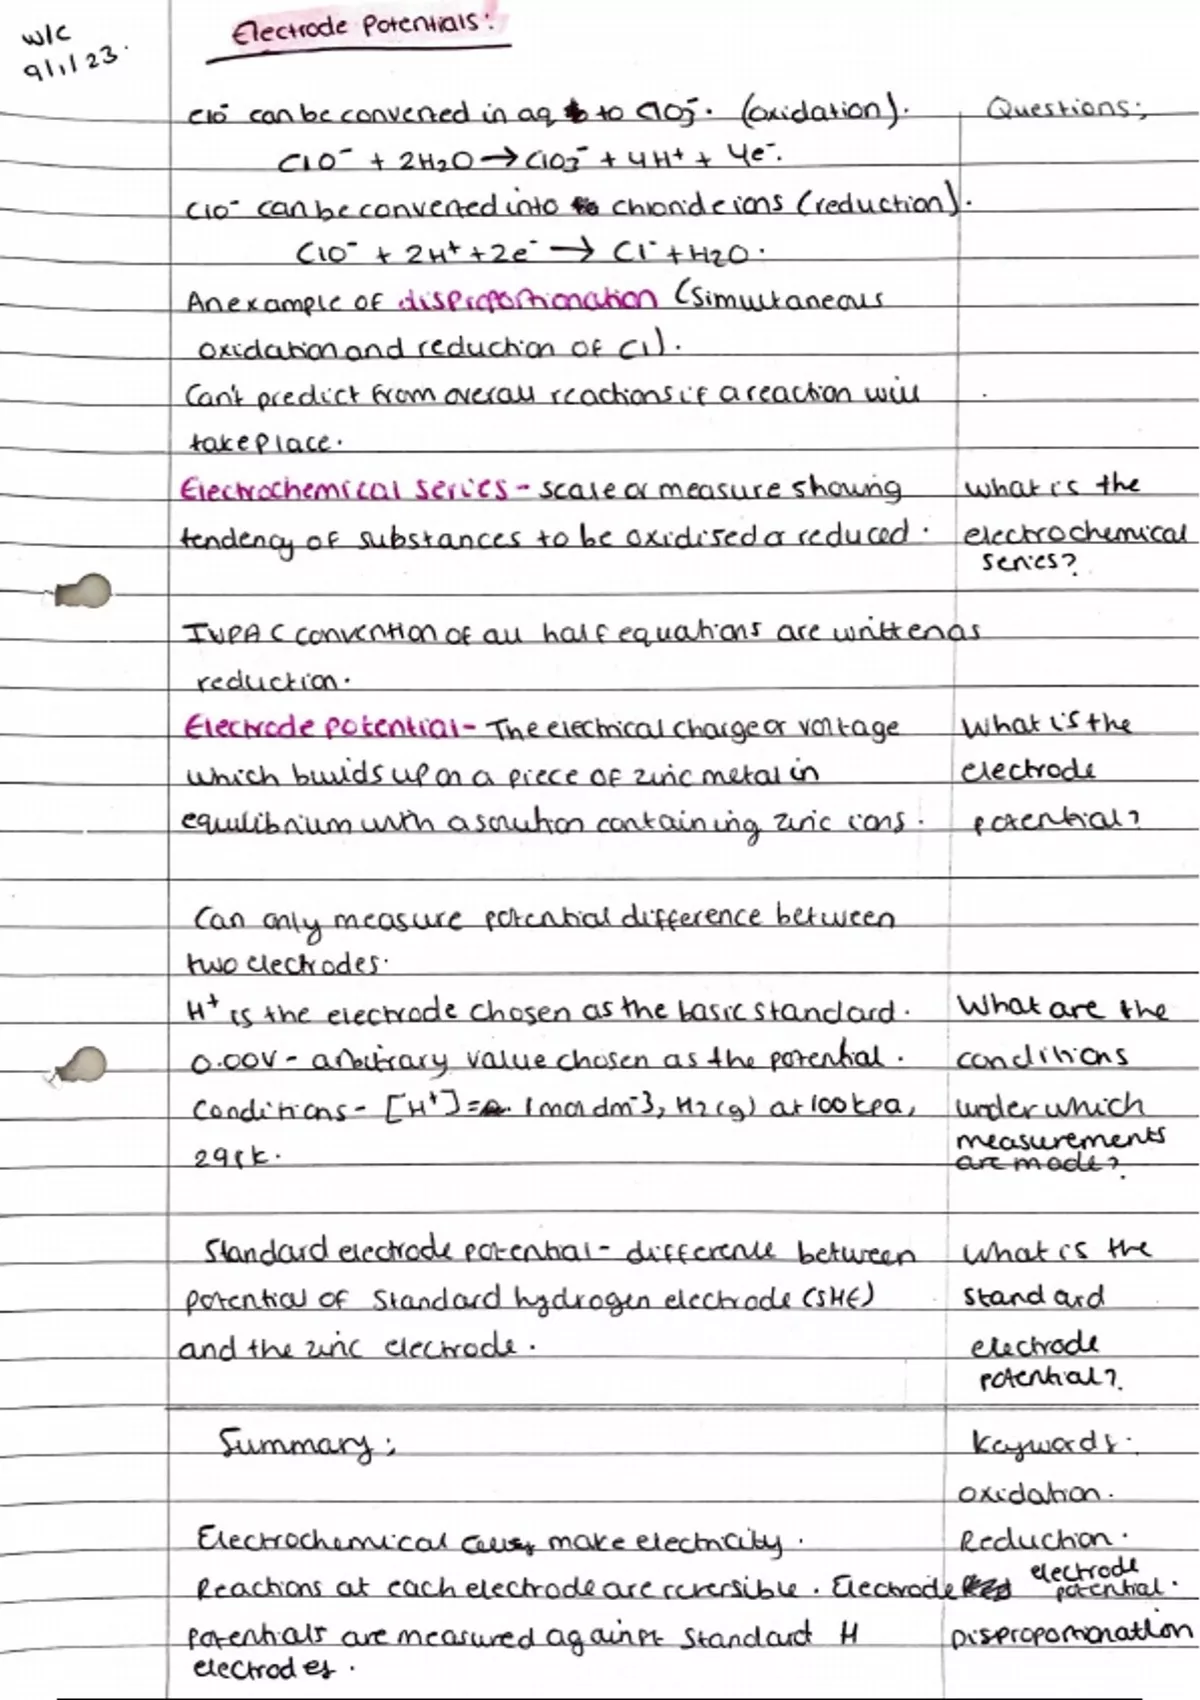 w/c
9/1/23.
Electrode Potentials:
ClO⁻ can be converted in aq to ClO₃⁻. (oxidation).
Questions:
ClO⁻ + 2H₂O → ClO₃⁻ + 4H⁺ + 4e⁻.
ClO⁻ can be converted into chloride ions (reduction).
ClO⁻ + 2H⁺ + 2e⁻ → Cl⁻ + H₂O.
An example of disproportionation (simultaneous
oxidation and reduction of Cl).
Can't predict from overall reactions if a reaction will
take place.
Electrochemical series - scale or measure showing
what is the
tendency of substances to be oxidised or reduced.
electrochemical
series?
IUPAC convention of all half equations are written as
reduction.
Electrode potential - The electrical charge or voltage
What is the
which builds up on a piece of zinc metal in
electrode
equilibrium with a solution containing zinc ions.
potential?
Can only measure potential difference between
two electrodes.
H⁺ is the electrode chosen as the basic standard.
What are the
0.00V - arbitrary value chosen as the potential.
conditions
Conditions - [H⁺] = 1mol dm⁻³, H₂(g) at 100kpa,
under which
298k.
measurements
are made?
Standard electrode potential - difference between
what is the
potential of standard hydrogen electrode (SHE)
standard
and the zinc electrode.
electrode
potential?
Summary;
Keywords:
oxidation.
Electrochemical cells make electricity.
Reduction.
Reactions at each electrode are reversible. Electrode
electrode
potential.
potentials are measured against standard H
Disproportionation
electrodes.